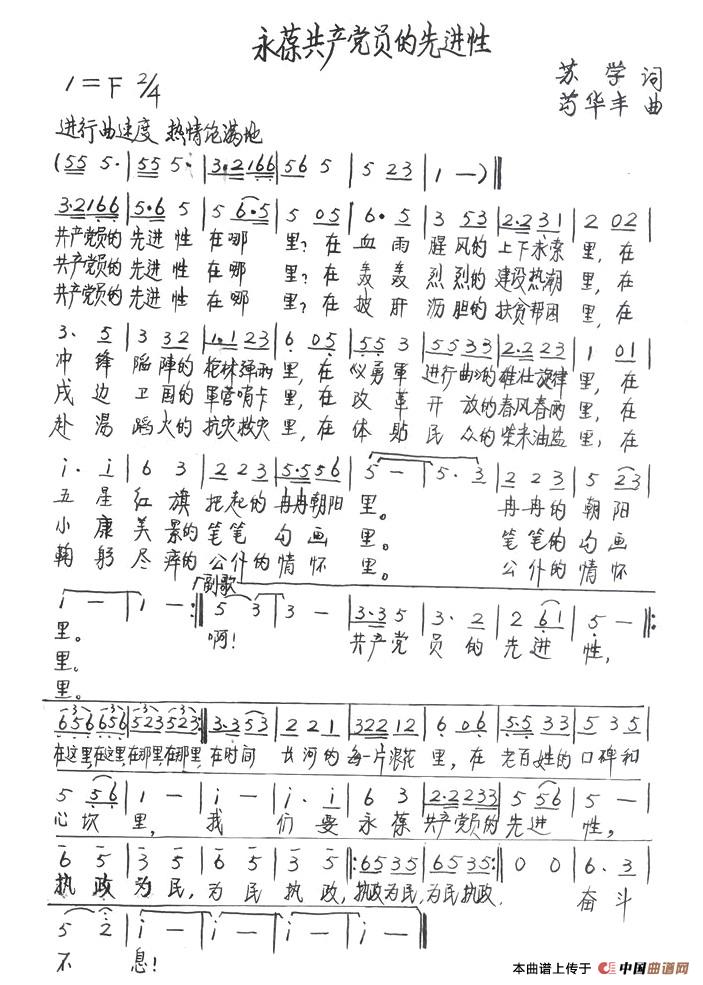 永葆共产党员的先进性
1=F 2/4
苏 学 词
芶华丰 曲
进行曲速度 热情饱满地
(55 5· | 55 5· | 3·2166 | 56 5 | 5 23 | 1 —)‖
3·2166 | 5·6 5 | 5 6·5 | 5 05 | 6· 5 | 3 53 | 2·231 | 2 02 |
共产党员的 先进 性 在哪 里?在 血 雨 腥 风的 上下求索 里,在
共产党员的 先进 性 在哪 里?在 轰 轰 烈 烈的 建设热潮 里,在
共产党员的 先进 性 在哪 里?在 披 肝 沥 胆的 扶贫帮困 里,在
3· 5 | 3 32 | 1·123 | 6 05 | 55 3 | 5533 | 2·223 | 1 01 |
冲 锋 陷 陣的 枪林弹雨 里,在 《义勇軍 进行曲》的 雄壮旋律 里,在
戍 边 卫 国的 軍营哨卡 里,在 改 革 开 放的 春风春雨 里,在
赴 湯 蹈 火的 抗灾救灾 里,在 体 貼 民 众的 柴米油盐 里,在
i· i | 6 3 | 2 23 | 5·556 | 5 — | 5· 3 | 2 23 | 5 23 |
五 星 红 旗 托起的 冉冉朝阳 里。 冉冉的 朝阳
小 康 美 景的 笔笔 勾 画 里。 笔笔的 勾画
鞠 躬 尽 瘁的 公仆的 情 怀 里。 公仆的 情怀
副歌
i — | i — :‖ 5 3 | 3 — | 3·3 5 | 3· 2 | 2 61 | 5 — ‖:
里。 啊! 共产党 员 的 先进 性,
里。
里。
656 656 | 523 523 :‖ 3·3 53 | 2 21 | 322 12 | 6 06 | 5·5 33 | 5 35 |
在这里,在这里,在那里,在那里, 在时间 长河的 每一片浪花 里,在 老百姓的 口碑和
5 56 | 1 — | i — | i· i | 6 3 | 2·2233 | 5 56 | 5 — |
心坎 里, 我 们 要 永葆 共产党员的 先进 性,
6 5 | 3 5 | 6 5 | 3 5 |: 6535 | 6535 :| 0 0 | 6· 3 |
执政 为民,为民 执政,执政为民,为民执政. 奋 斗
5 2 | i — | i — | i — | i — ‖
不 息!
本曲谱上传于 中国曲谱网